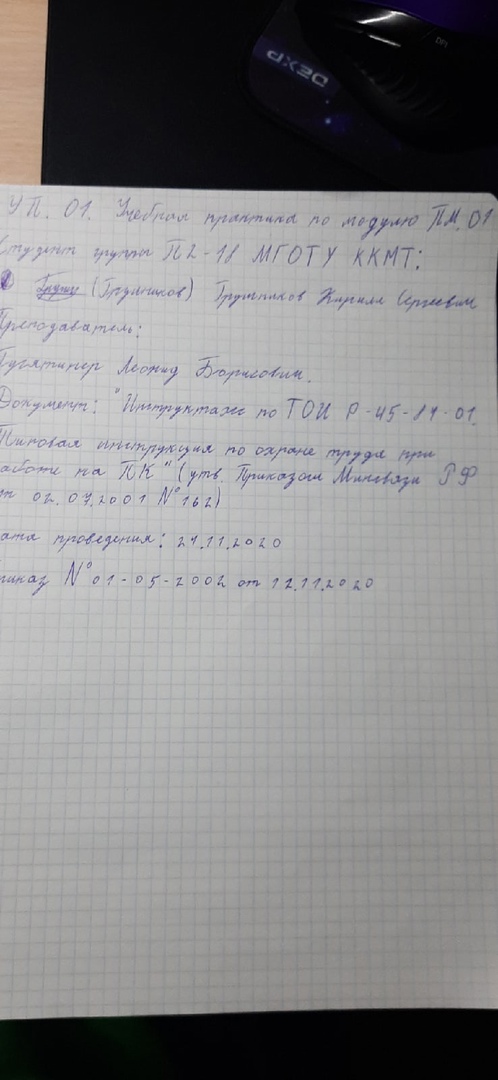 DPI
DEXP
УП. 01. Учебная практика по модулю ПМ. 01
Студент группы П2-18 МГОТУ ККМТ:
(Грушников) Грушников Кирилл Сергеевич
Преподаватель:
Гусятинер Леонид Борисович.
Документ: "Инструктаж по ТОИ Р-45-84-01.
Типовая инструкция по охране труда при
работе на ПК" (утв. Приказом Минсвязи РФ
от 02.07.2001 №162)
ата проведения: 24.11.2020
риказ №01-05-2002 от 12.11.2020